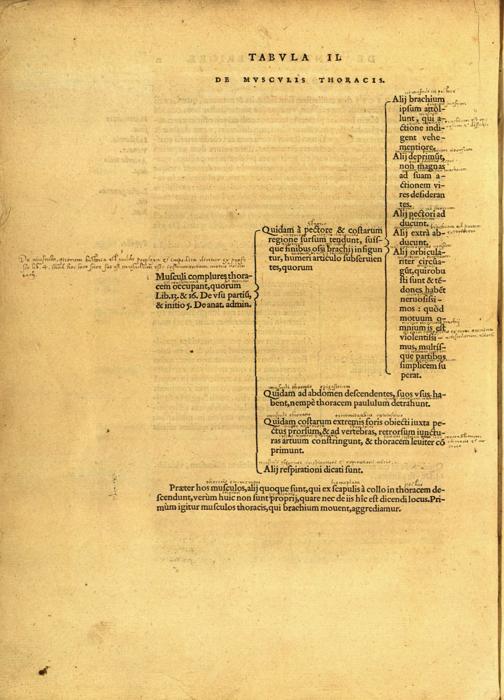 TABVLA II.
DE MVSCVLIS THORACIS.
Musculi complures thora-
cem occupant, quorum
Lib.13. & 16. De vsu partiũ,
& initio 5. De anat. admin.
Quidam à pectore & costarum
regione sursum tendunt, suis-
que finibus ossi brachij infigun
tur, humeri articulo subseruien
tes, quorum
Alij brachium
ipsum attol-
lunt, qui a-
ctione indi-
gent vehe-
mentiore.
Alij deprimũt,
non magnas
ad suam a-
ctionem vi-
res desideran
tes.
Alij pectori ad
ducunt.
Alij extrà ab-
ducunt.
Alij orbicula-
riter circũa-
gũt, quirobu
sti sunt & tẽ-
dones habẽt
neruosissi-
mos: quòd
motuum o-
mnium is est
violentissi-
mus, multis-
que partibus
simplicem su
perat.
Quidam ad abdomen descendentes, suos vsus ha-
bent, nempè thoracem paululum detrahunt.
Quidam costarum extremis foris obiecti iuxta pe-
ctus prorsum, & ad vertebras, retrorsum iunctu-
ras artuum constringunt, & thoracem leuiter cõ
primunt.
Alij respirationi dicati sunt.
Præter hos musculos, alij quoque sunt, qui ex scapulis à collo in thoracem de-
scendunt, verùm huic non sunt proprij, quare nec de iis hîc est dicendi locus. Pri-
mùm igitur musculos thoracis, qui brachium mouent, aggrediamur.